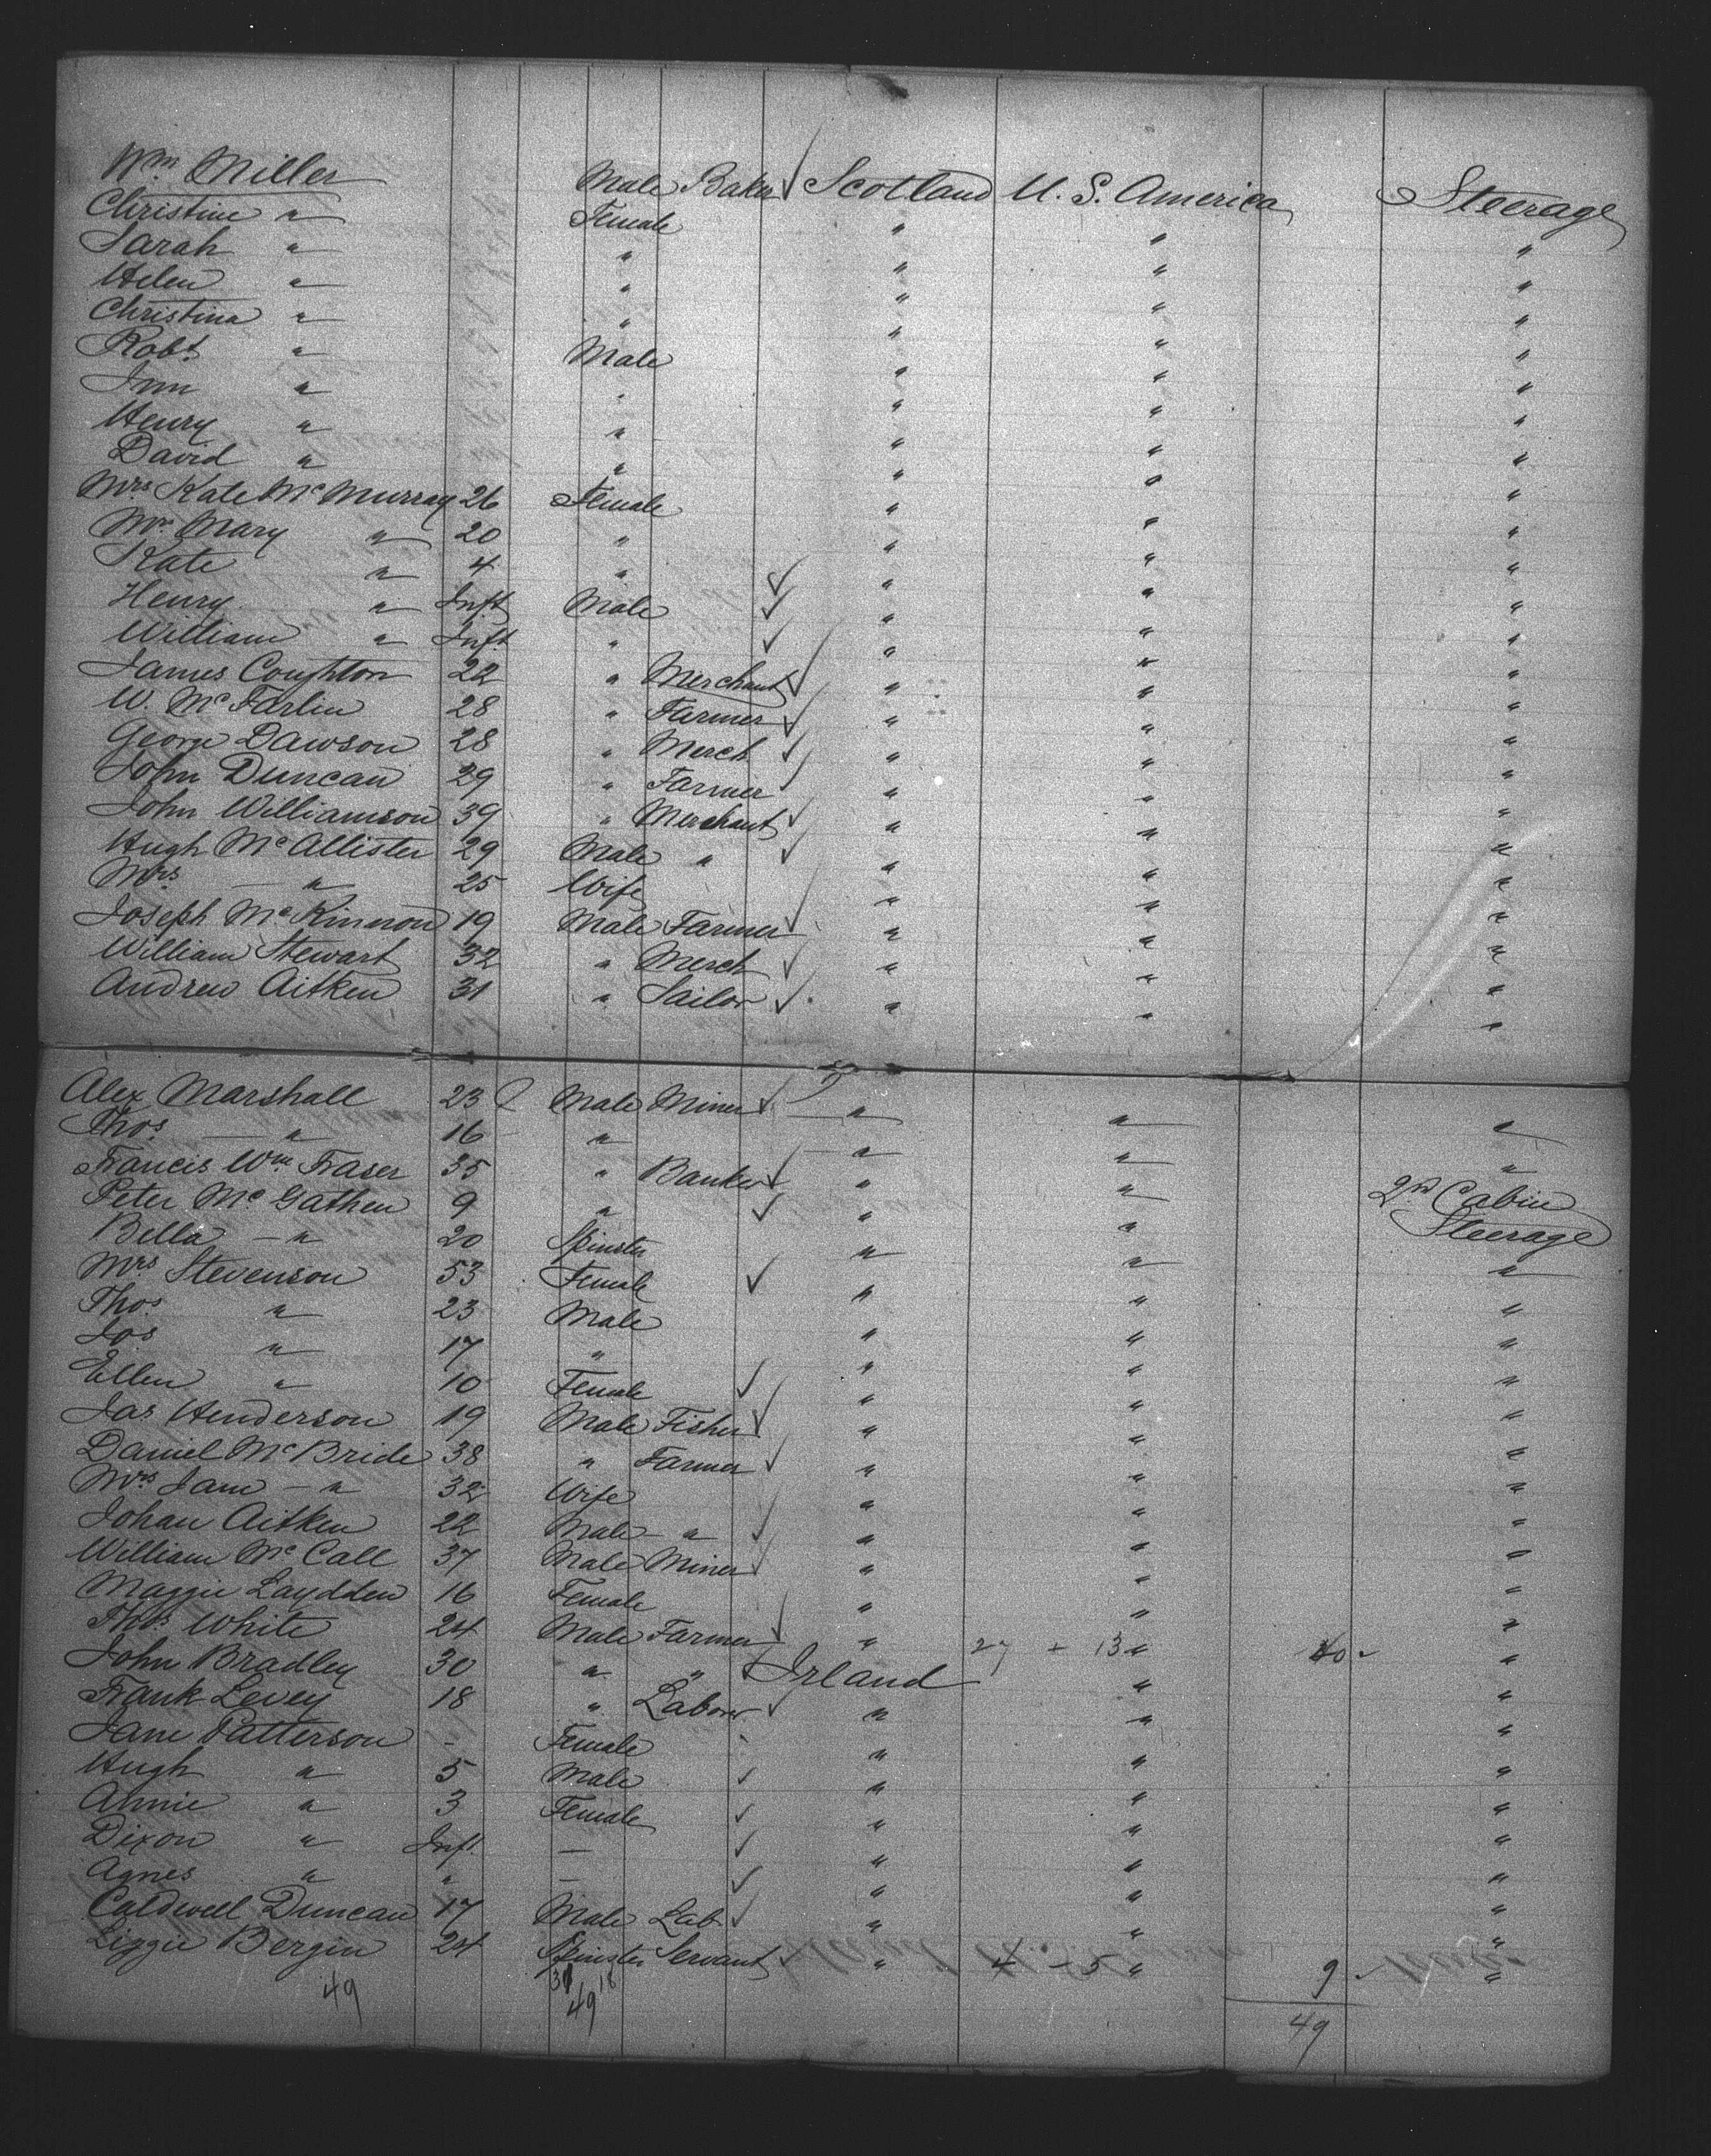 Wm Miller Male Baker Scotland U. S. America Steerage
Christine " Female " " "
Sarah " " " " "
Helen " " " " "
Christina " " " " "
Robt " Male " " "
Jnn " " " " "
Henry " " " " "
David " " " " "
Mrs Kate McMurray 26 Female " " "
Mrs Mary " 20 " " " "
Kate " 4 " " " "
Henry " Inft Male " " "
William " Inft " " " "
James Coughton 22 " Merchant " " "
W. McFarlin 28 " Farmer " " "
George Dawson 28 " Merch " " "
John Duncan 29 " Farmer " " "
John Williamson 39 " Merchant " " "
Hugh McAllister 29 Male " " " "
Mrs — " 25 Wife " " "
Joseph McKinnon 19 Male Farmer " " "
William Stewart 32 " Merch " " "
Andrew Aitken 31 " Sailor " " "
Alex Marshall 23 Male Miner " " "
Thos — " 16 " " " "
Francis Wm Fraser 35 " Banker " " 2nd Cabin
Peter McGathen 9 " " " Steerage
Bella — " 20 Spinster " " "
Mrs Stevenson 53 Female " " "
Thos " 23 Male " " "
Jos " 17 " " " "
Ellen " 10 Female " " "
Jas Henderson 19 Male Fisher " " "
Daniel McBride 38 " Farmer " " "
Mrs Jane — " 32 Wife " " "
Johan Aitken 22 Male — " " " "
William McCall 37 Male Miner " " "
Maggie Laydden 16 Female " " "
Thos White 24 Male Farmer " 27 + 13 " 40 "
John Bradley 30 " " Irland " "
Frank Levey 18 " Labour " " "
Jane Patterson - Female " " "
Hugh " 5 Male " " "
Annie " 3 Female " " "
Dixon " Inft. — " " "
Agnes " " — " " "
Caldwell Duncan 17 Male Lab " " "
Lizzie Bergin 24 Spinster Servant " 4 - 5 " 9 "
49 31 18 49 49